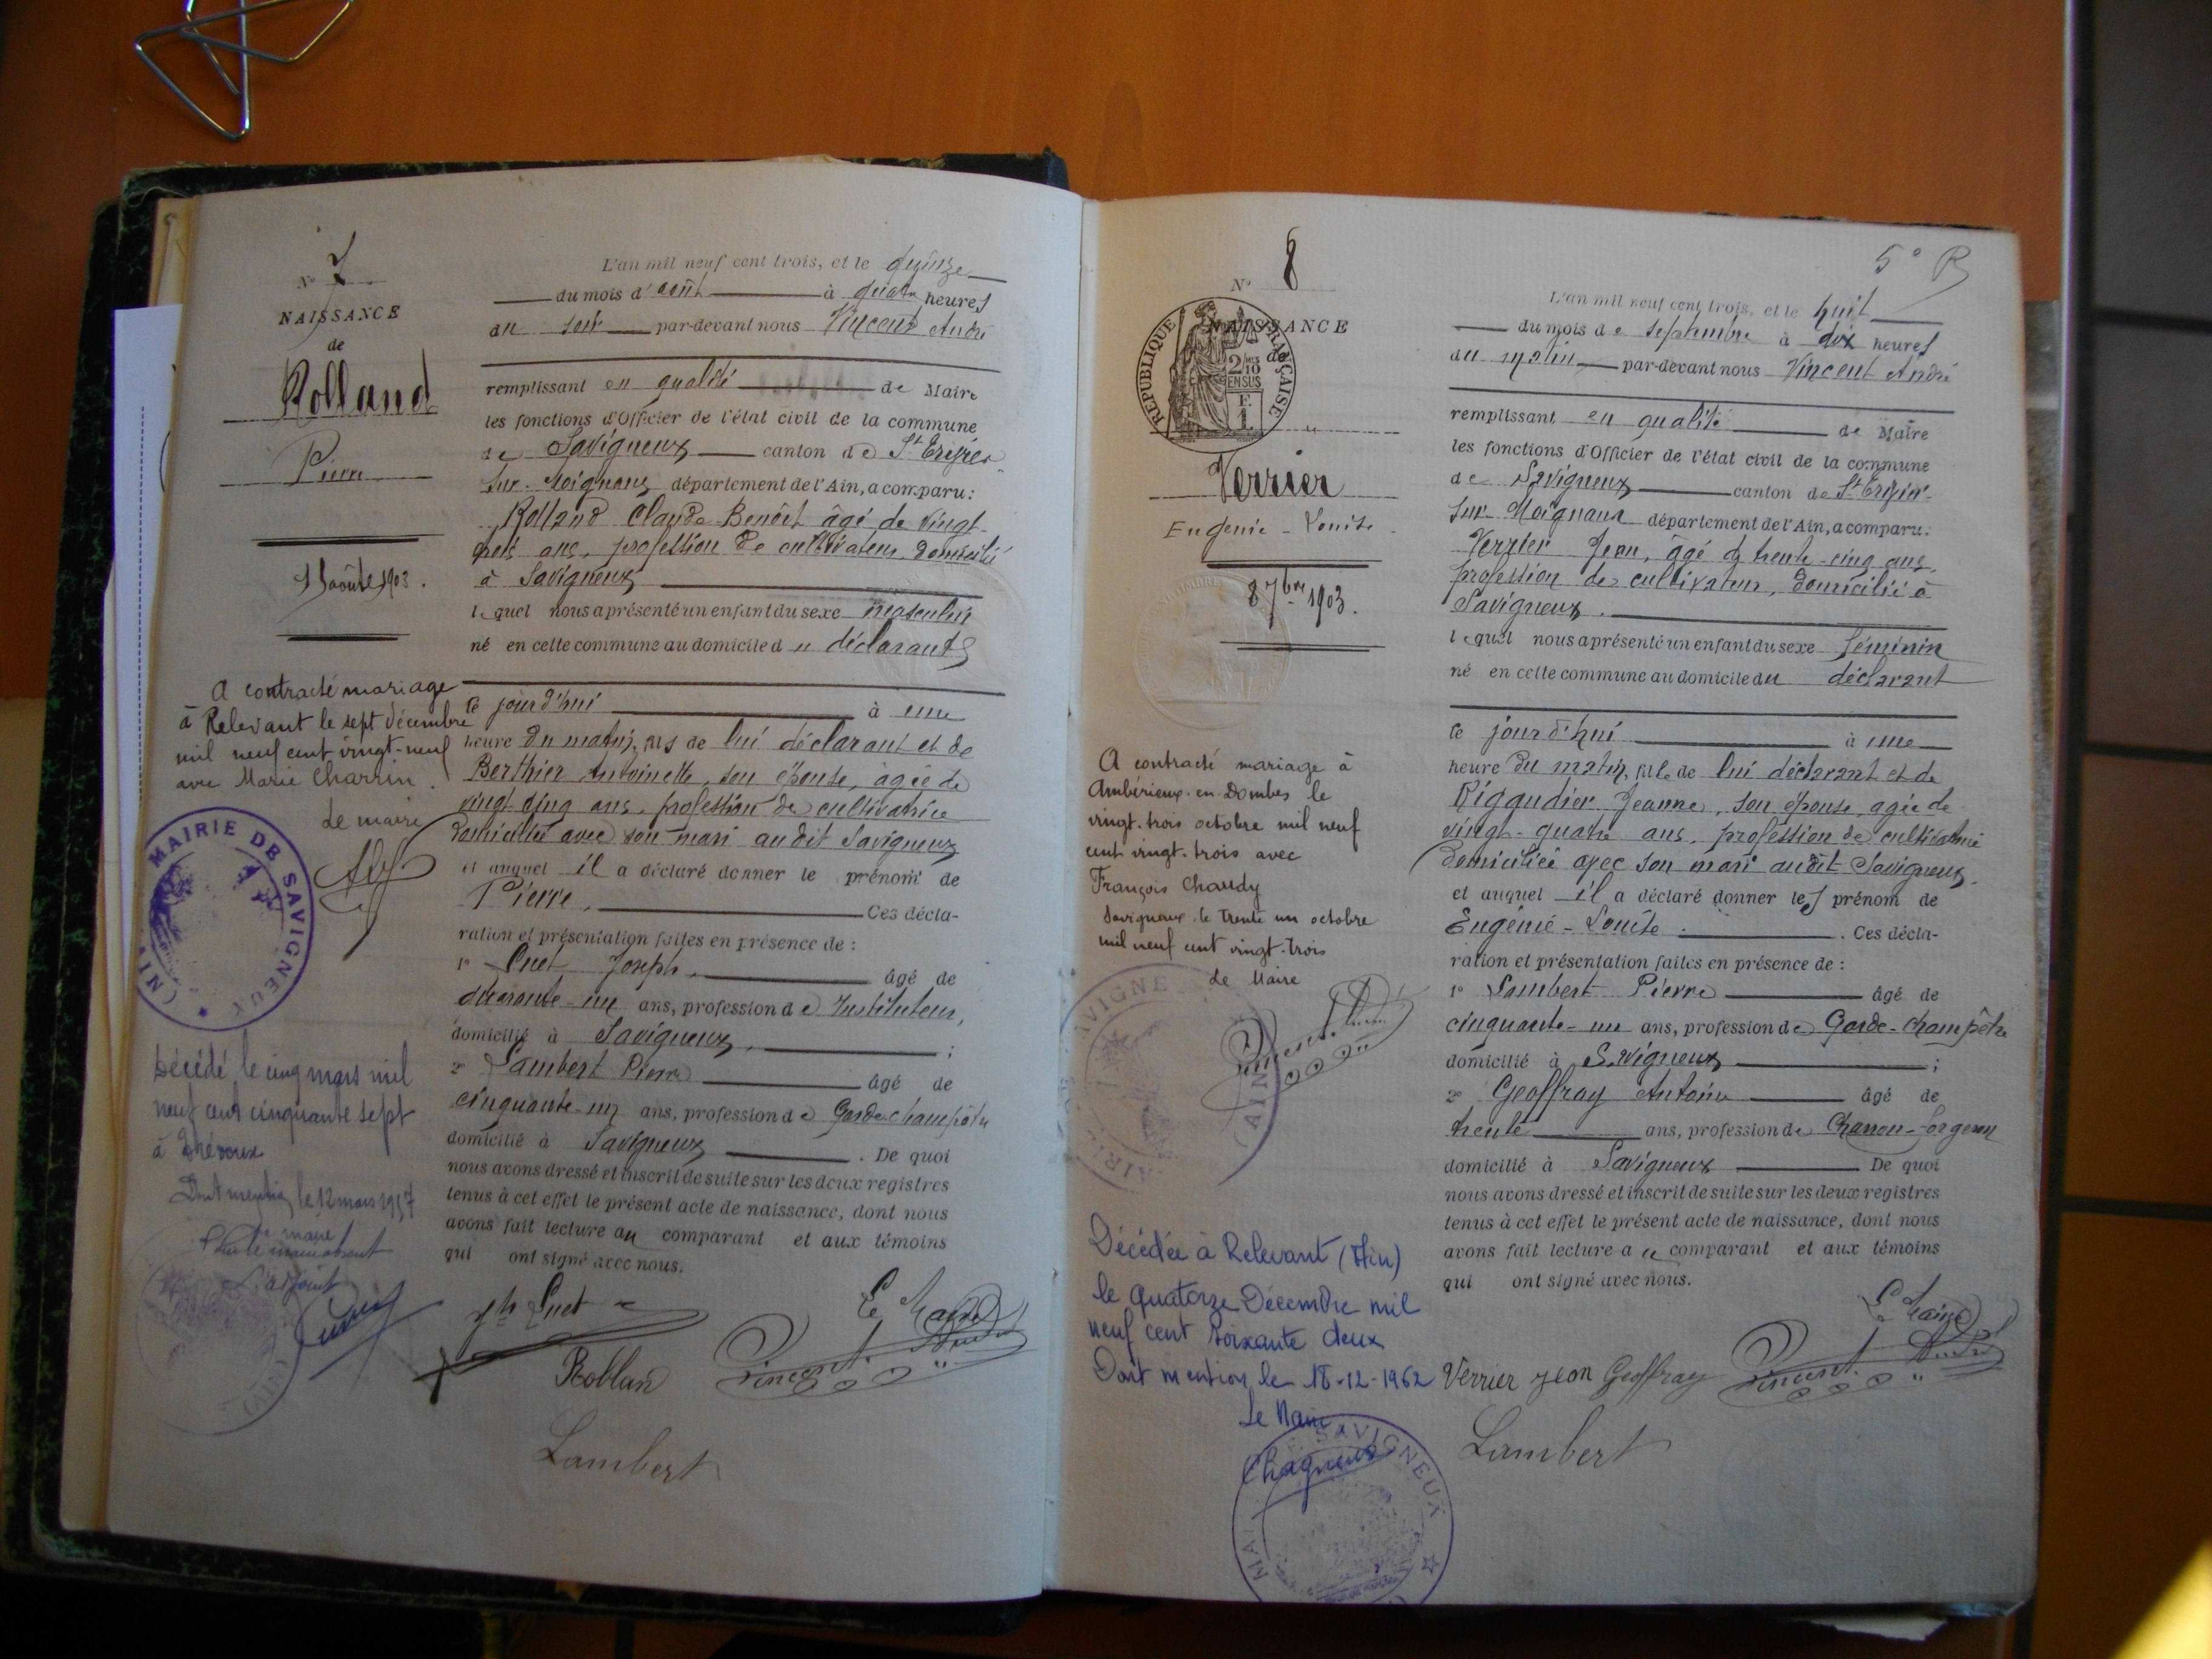 N° 7
NAISSANCE
de
Rolland
Pierre
15 août 1903.
A contracté mariage
à Relevant le sept décembre
mil neuf cent vingt-neuf
avec Marie Charrin.
Le maire
MAIRIE DE SAVIGNEUX * (AIN)
Décédé le cinq mars mil
neuf cent cinquante sept
à Trévoux
Dont mention le 12 mars 1957
L'adjoint
(AIN)
L'an mil neuf cent trois, et le quinze
du mois d'août à quatre heures
du soir par-devant nous Vincent André
remplissant en qualité de Maire
les fonctions d'Officier de l'état civil de la commune
de Savigneux canton de St Trivier
sur Moignans département de l'Ain, a comparu:
Rolland Claude Benoît âgé de vingt
ans, profession de cultivateur, domicilié
à Savigneux
lequel nous a présenté un enfant du sexe masculin
né en cette commune au domicile du déclarant
ce jourd'hui à une
heure du matin, fils de lui déclarant et de
Berthier Antoinette, son épouse, âgée de
vingt cinq ans, profession de cultivatrice
domiciliée avec son mari audit Savigneux
et auquel il a déclaré donner le prénom de
Pierre, Ces décla-
ration et présentation faites en présence de :
1° Cuet Joseph, âgé de
quarante-un ans, profession de Instituteur,
domicilié à Savigneux, ;
2° Lambert Pierre âgé de
cinquante-un ans, profession de Garde-champêtre
domicilié à Savigneux . De quoi
nous avons dressé et inscrit de suite sur les deux registres
tenus à cet effet le présent acte de naissance, dont nous
avons fait lecture au comparant et aux témoins
qui ont signé avec nous.
Jh Cuet Le Maire
Rollan Vincent André
Lambert
5° R
N° 8
NAISSANCE
de
RÉPUBLIQUE FRANÇAISE
2/10 EN SUS
F. 1
Verrier
Eugénie - Louise
8 7bre 1903.
A contracté mariage à
Ambérieux-en-Dombes le
vingt-trois octobre mil neuf
cent vingt-trois avec
François Chaudy
Savigneux le trente un octobre
mil neuf cent vingt-trois
Le Maire
Vincent André
Décédée à Relevant (Ain)
le quatorze Décembre mil
neuf cent soixante deux
Dont mention le 18-12-1962
Le Maire
MAIRIE SAVIGNEUX
L'an mil neuf cent trois, et le huit
du mois de septembre à dix heures
du matin par-devant nous Vincent André
remplissant en qualité de Maire
les fonctions d'Officier de l'état civil de la commune
de Savigneux canton de St Trivier
sur Moignans département de l'Ain, a comparu:
Verrier Jean, âgé de trente-cinq ans,
profession de cultivateur, domicilié à
Savigneux.
lequel nous a présenté un enfant du sexe féminin
né en cette commune au domicile du déclarant
ce jourd'hui à une
heure du matin, fille de lui déclarant et de
Riggudier Jeanne, son épouse, âgée de
vingt-quatre ans, profession de cultivatrice
domiciliée avec son mari audit Savigneux.
et auquel il a déclaré donner les prénom de
Eugénie - Louise. . Ces décla-
ration et présentation faites en présence de :
1° Lambert Pierre âgé de
cinquante-un ans, profession de Garde-champêtre
domicilié à Savigneux ;
2° Geoffray Antoine âgé de
trente ans, profession de Charron-forgeron
domicilié à Savigneux De quoi
nous avons dressé et inscrit de suite sur les deux registres
tenus à cet effet le présent acte de naissance, dont nous
avons fait lecture au comparant et aux témoins
qui ont signé avec nous.
Le Maire
Verrier Jean Geoffray Vincent André
Lambert